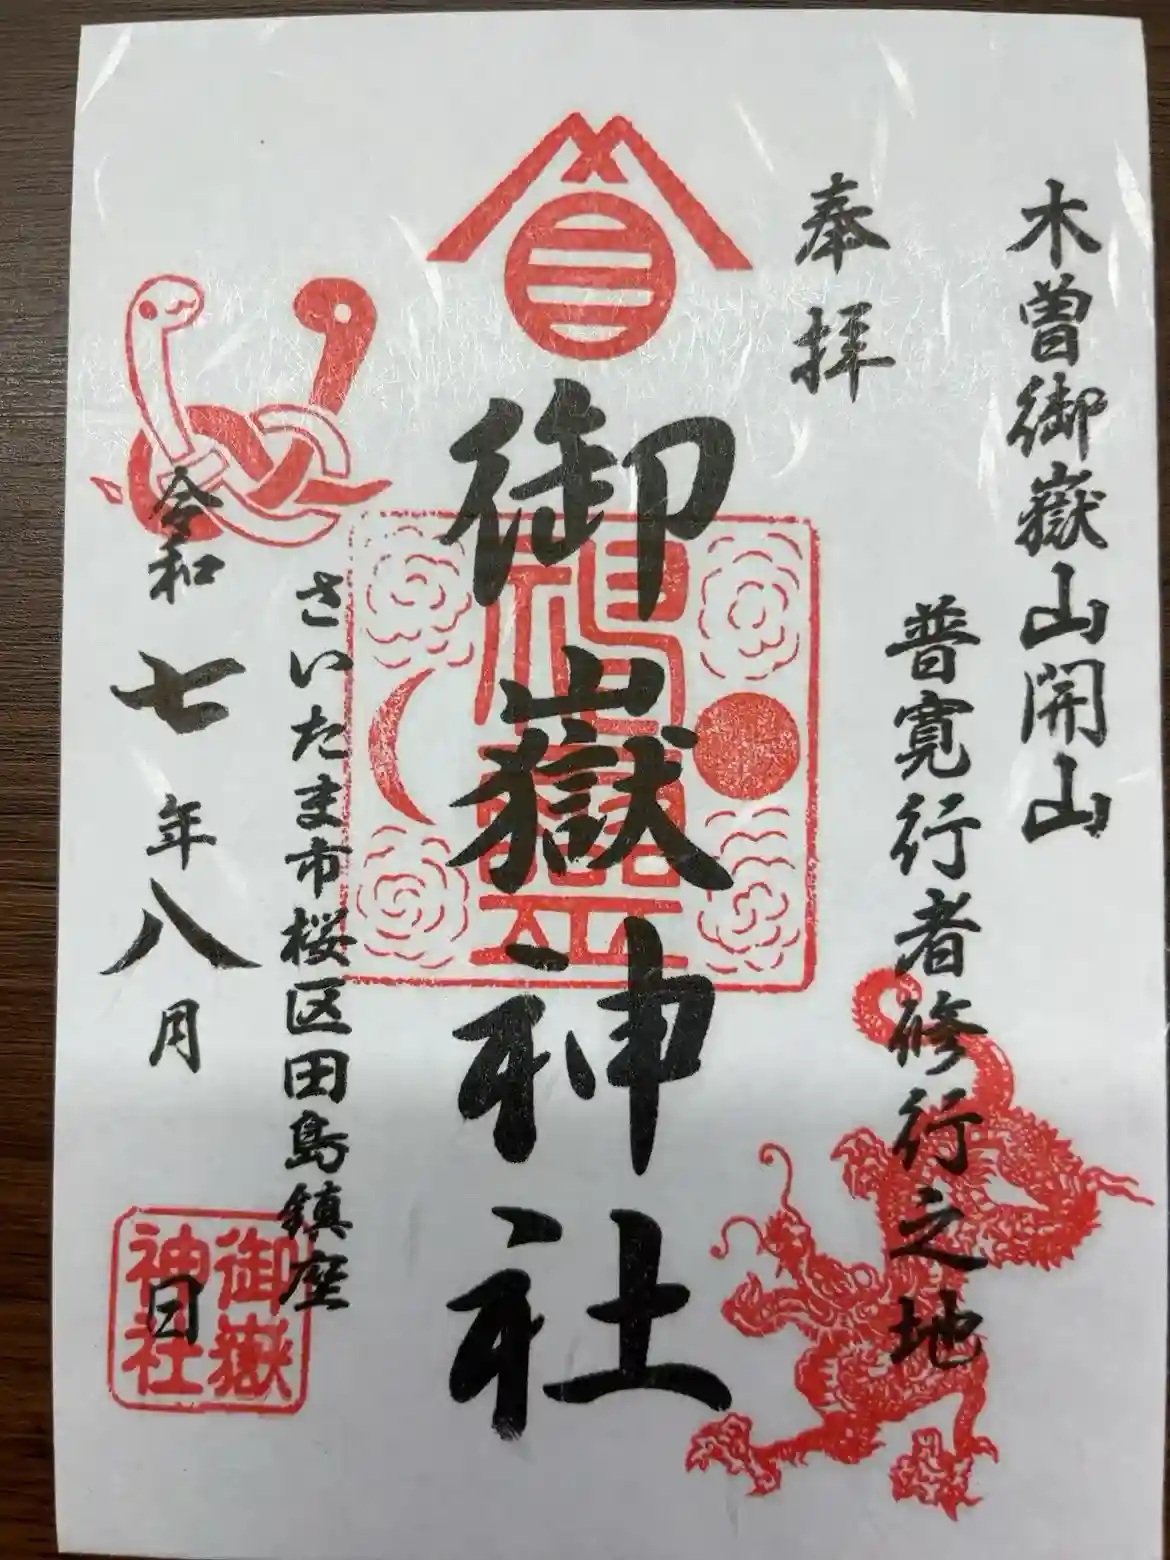 木曽御嶽山開山
普寛行者修行之地
奉拝
御嶽神社
さいたま市桜区田島鎮座
令和七年八月 日
御嶽
神社